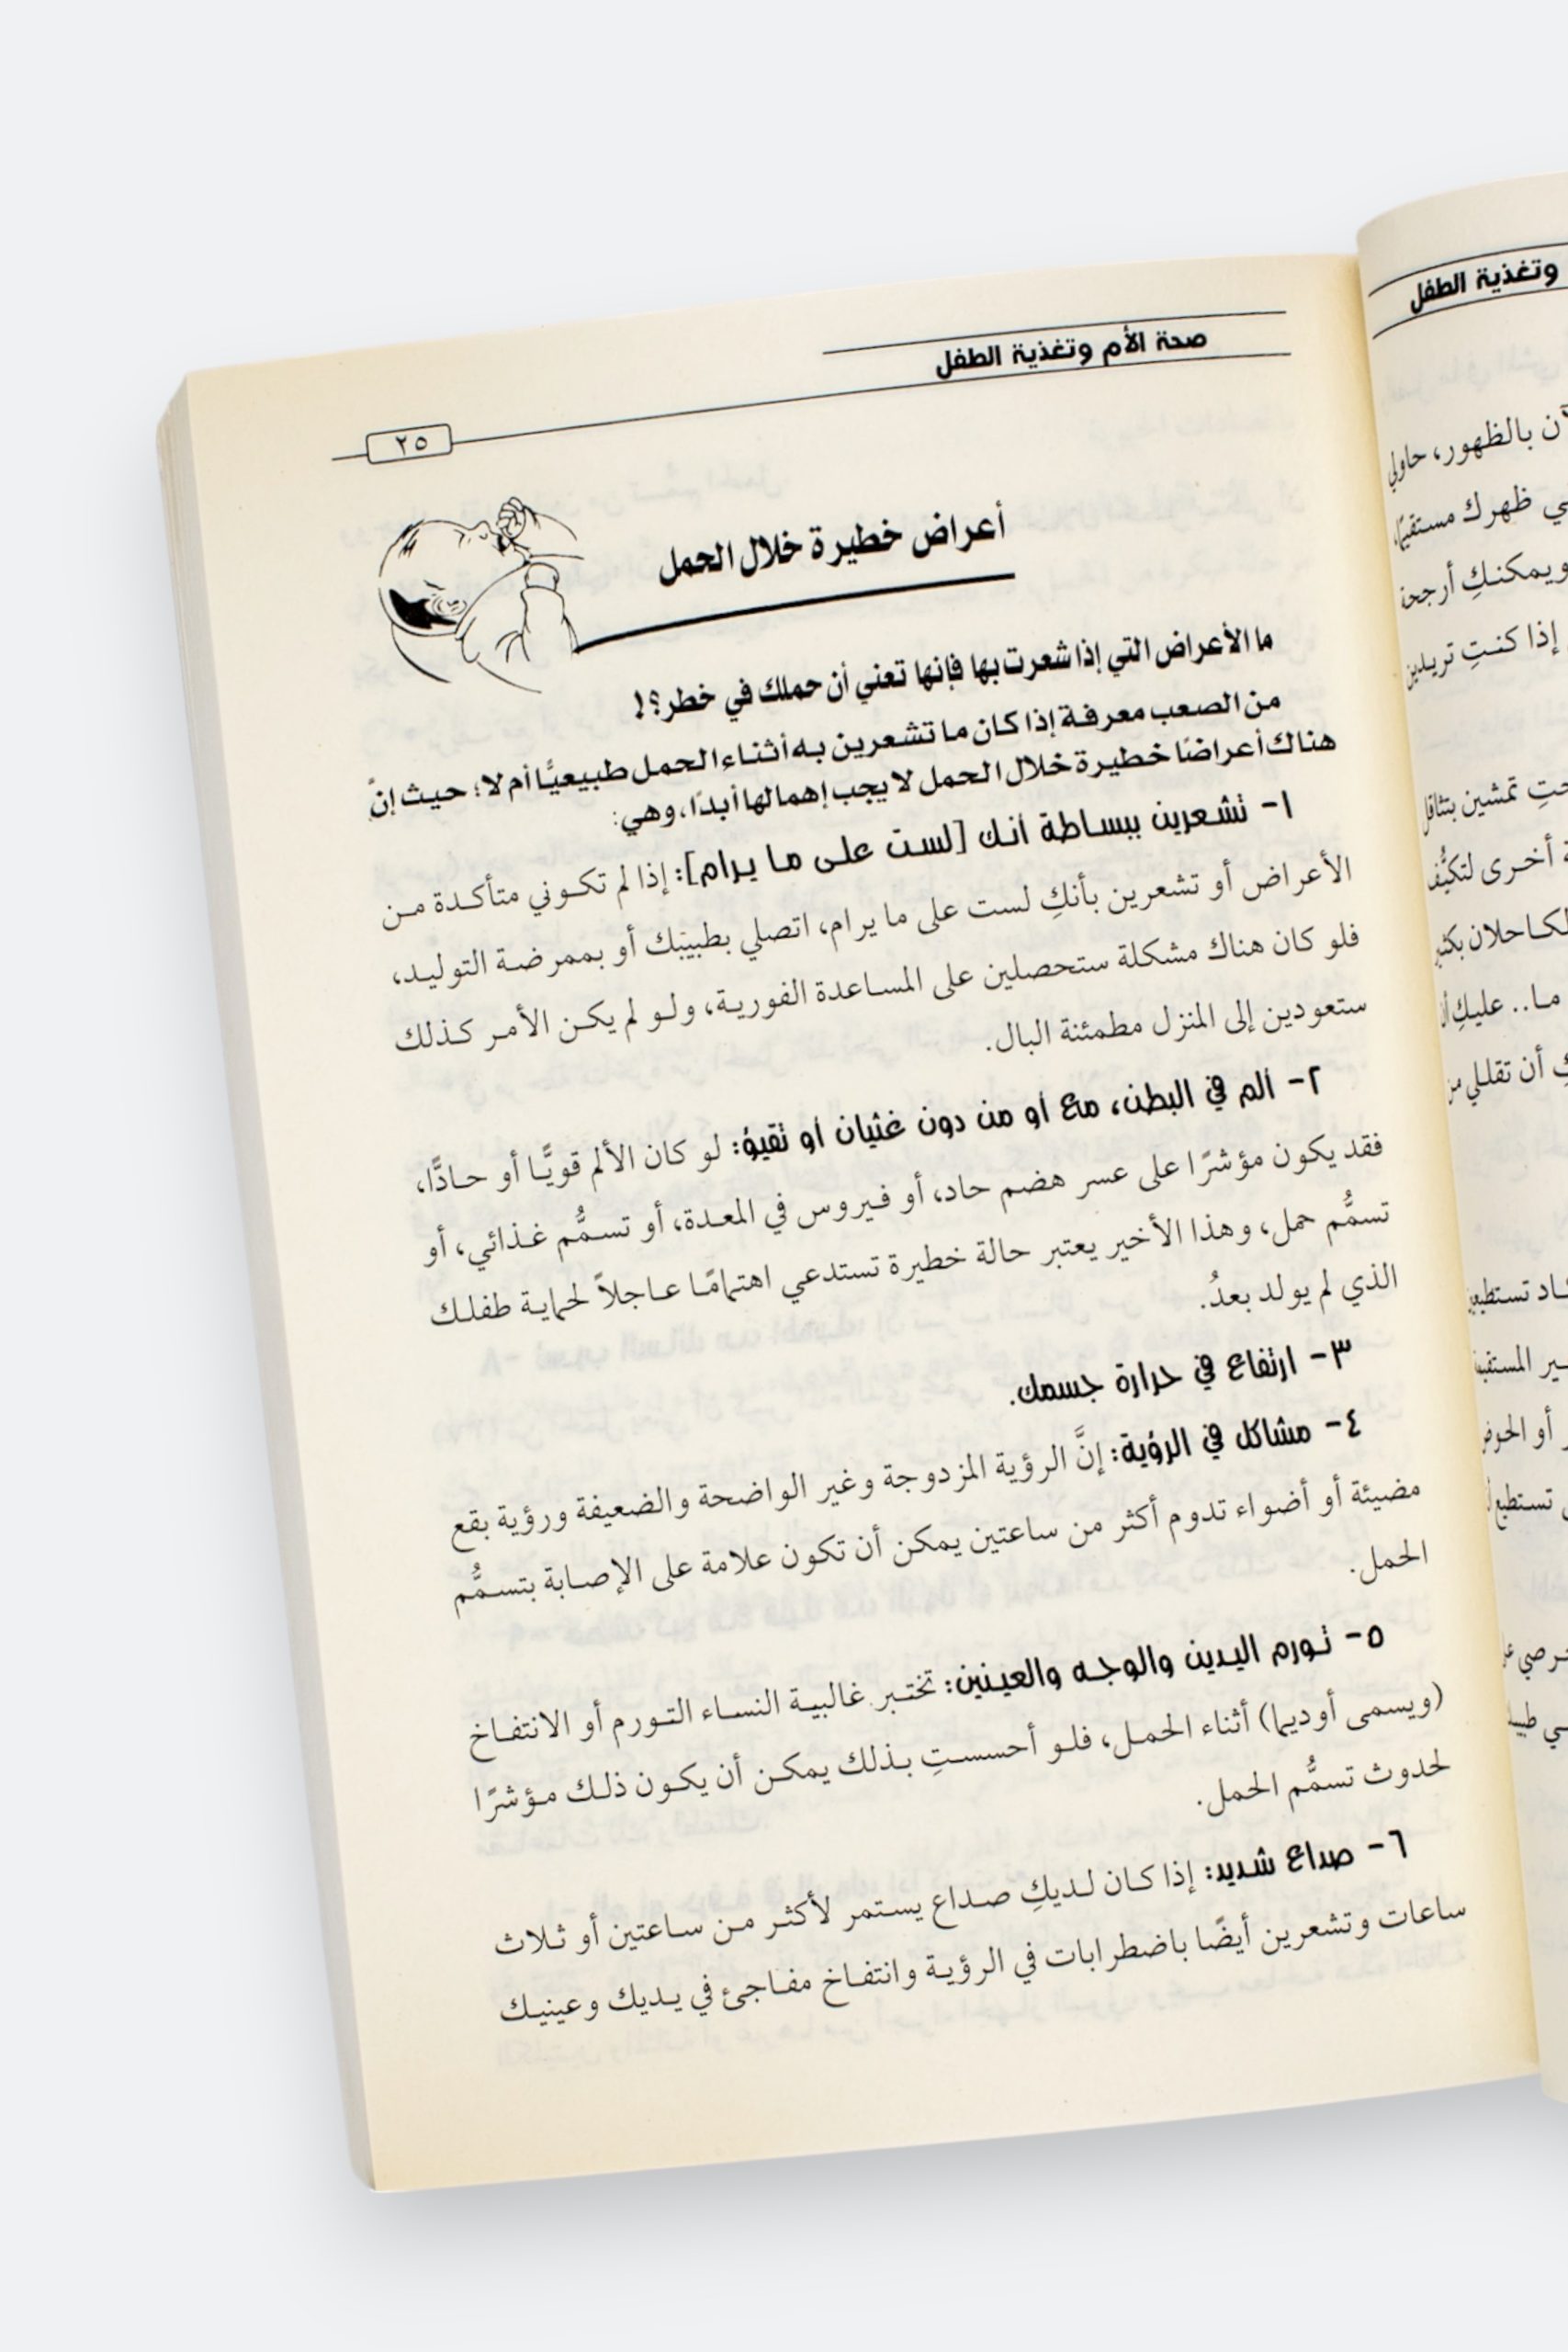 صحة الأم وتغذية الطفل
٢٥
أعراض خطيرة خلال الحمل
ما الأعراض التي إذا شعرت بها فإنها تعني أن حملك في خطر؟!
من الصعب معرفة إذا كان ما تشعرين به أثناء الحمل طبيعيًّا أم لا؛ حيث إنَّ
هناك أعراضًا خطيرة خلال الحمل لا يجب إهمالها أبدًا، وهي:
١- تشعرين ببساطة أنك [لست على ما يرام]: إذا لم تكوني متأكدة من
الأعراض أو تشعرين بأنكِ لست على ما يرام، اتصلي بطبيبك أو بممرضة التوليد،
فلو كان هناك مشكلة ستحصلين على المساعدة الفورية، ولو لم يكن الأمر كذلك
ستعودين إلى المنزل مطمئنة البال.
٢- ألم في البطن، مع أو من دون غثيان أو تقيؤ: لو كان الألم قويًّا أو حادًّا،
فقد يكون مؤشرًا على عسر هضم حاد، أو فيروس في المعدة، أو تسمُّم غذائي، أو
تسمُّم حمل، وهذا الأخير يعتبر حالة خطيرة تستدعي اهتمامًا عاجلاً لحماية طفلك
الذي لم يولد بعدُ.
٣- ارتفاع في حرارة جسمك.
٤- مشاكل في الرؤية: إنَّ الرؤية المزدوجة وغير الواضحة والضعيفة ورؤية بقع
مضيئة أو أضواء تدوم أكثر من ساعتين يمكن أن تكون علامة على الإصابة بتسمُّم
الحمل.
٥- تورم اليدين والوجه والعينين: تختبر غالبية النساء التورم أو الانتفاخ
(ويسمى أوديما) أثناء الحمل، فلو أحسستِ بذلك يمكن أن يكون ذلك مؤشرًا
لحدوث تسمُّم الحمل.
٦- صداع شديد: إذا كان لديكِ صداع يستمر لأكثر من ساعتين أو ثلاث
ساعات وتشعرين أيضًا باضطرابات في الرؤية وانتفاخ مفاجئ في يديك وعينيك
وتغذية الطفل
بالظهور، حاولي
ظهرك مستقيمًا،
ويمكنكِ أرجحة
إذا كنتِ تريدين
تمشين بتثاقل
أخرى
الكاحلان
ما.. عليكِ
أن تقللي من
تستطيعين
أو